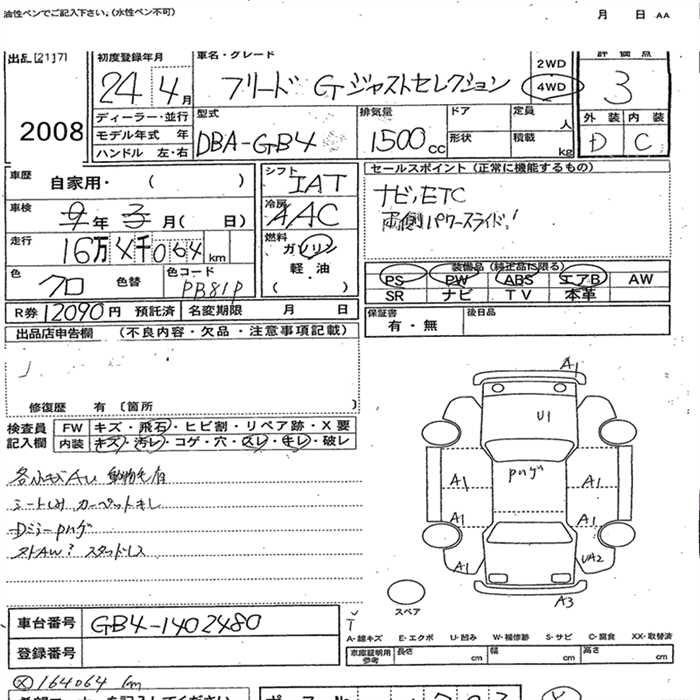 油性ペンでご記入下さい。(水性ペン不可) 月 日 AA
出品 [2117]
2008
初度登録年月
24年 4月
車名・グレード
フリード G ジャストセレクション
2WD
4WD
評価点
3
ディーラー・並行
モデル年式 年
ハンドル 左・右
型式
DBA-GB4
排気量
1500cc
ドア
形状
定員 人
積載 kg
外装 内装
D C
車歴 自家用・( )
車検 9年 3月( 日)
走行 16万4千064km
色 クロ 色替
色コード
PB81P
シフト
IAT
冷房
AAC
燃料
ガソリン
軽・油
( )
セールスポイント(正常に機能するもの)
ナビ,ETC
両側パワースライド!
装備品(純正品に限る)
PS PW ABS エアB AW
SR ナビ TV 本革
R券 12090円 預託済 名変期限 月 日
保証書
有・無
後日品
出品店申告欄 (不良内容・欠品・注意事項記載)
修復歴 有〔箇所 〕
検査員
記入欄
FW キズ・飛石・ヒビ割・リペア跡・X要
内装 キズ・汚レ・コゲ・穴・スレ・キレ・破レ
各小キズAU 動物毛有
シートしみ カーペットキレ
Dミラーpんグ
ストAW? スタッドレス
A1
U1
pんグ
A1 A1
A1 A1
A1 UA2
A3
スペア
車台番号 GB4-1402480
登録番号
A-線キズ E-エクボ U-凹み W-補修跡 S-サビ C-腐食 XX-取替済
車庫証明用
参考
長さ cm 幅 cm 高さ cm
164064 km